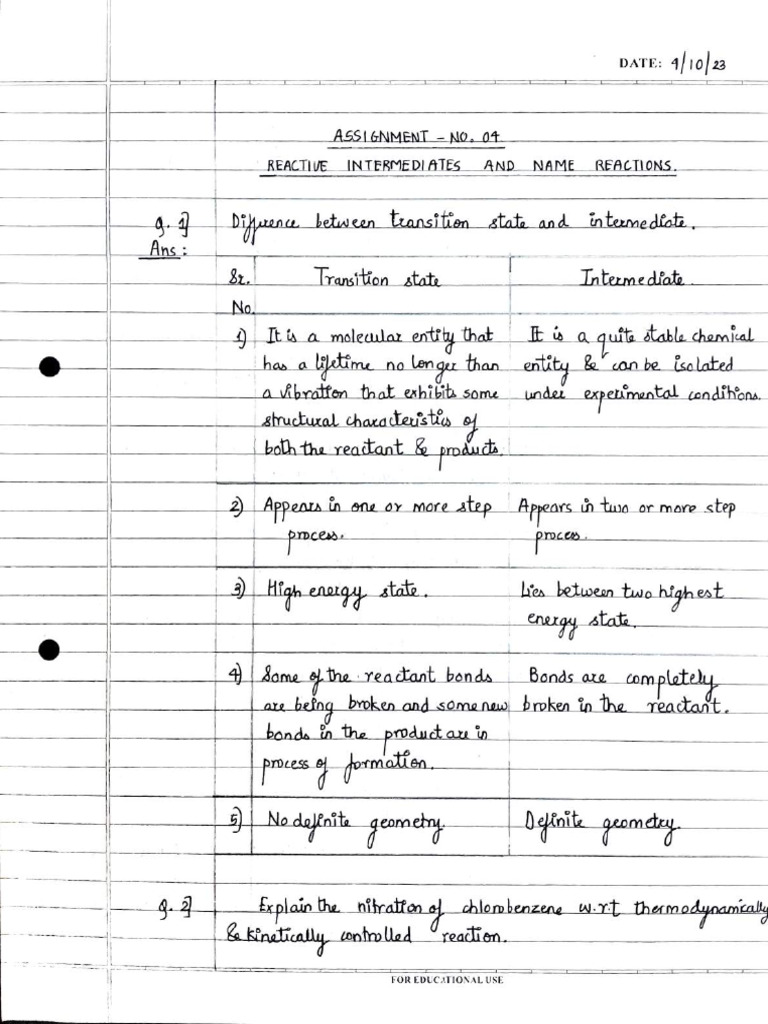 DATE: 9/10/23
ASSIGNMENT - NO. 04
REACTIVE INTERMEDIATES AND NAME REACTIONS.
Q. 1] Diffrence between transition state and intermediate.
Ans:
Sr. No. Transition state Intermediate
1) It is a molecular entity that
has a lifetime no longer than
a vibration that exhibits some
structural characteristics of
both the reactant & products.
It is a quite stable chemical
entity & can be isolated
under experimental conditions.
2) Appears in one or more step
process.
Appears in two or more step
process.
3) High energy state.
Lies between two highest
energy state.
4) Some of the reactant bonds
are being broken and some new
bonds in the product are in
process of formation.
Bonds are completely
broken in the reactant.
5) No definite geometry.
Definite geometry.
Q. 2] Explain the nitration of chlorobenzene w.r.t thermodynamically
& kinetically controlled reaction.
FOR EDUCATIONAL USE